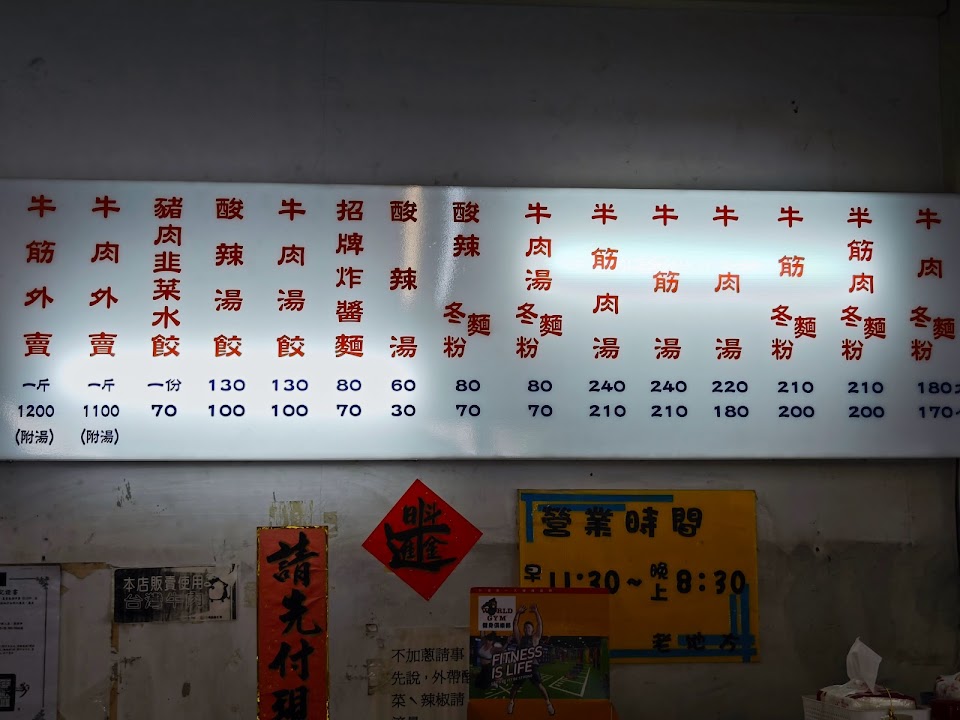 牛肉麵冬粉
180
170
半筋肉麵冬粉
210
200
牛筋麵冬粉
210
200
牛肉湯
220
180
牛筋湯
240
210
半筋肉湯
240
210
牛肉湯麵冬粉
80
70
酸辣麵冬粉
80
70
酸辣湯
60
30
招牌炸醬麵
80
70
牛肉湯餃
130
100
酸辣湯餃
130
100
豬肉韭菜水餃
一份
70
牛肉外賣
一斤
1100
(附湯)
牛筋外賣
一斤
1200
(附湯)
營業時間
早11:30~晚上8:30
老地方
日斗
進金
請先付現
本店販賣使用
台灣牛
不加蔥請事
先說,外帶酸
菜、辣椒請
WORLD
GYM
健身俱樂部
FITNESS
IS LIFE